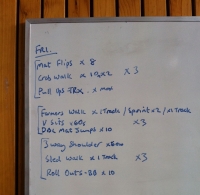 FRI.
Mat Flips x 8
Crab Walk x 1TRx2 x3
Pull ups TRX. x max
Farmers Walk x 1Track / Sprint x2 / x1 Track
V Sits x 60s x3
DBL Mat Jumps x 10
3 way Shoulder x 6
Sled Walk x 1 Track x3
Roll Outs x 10